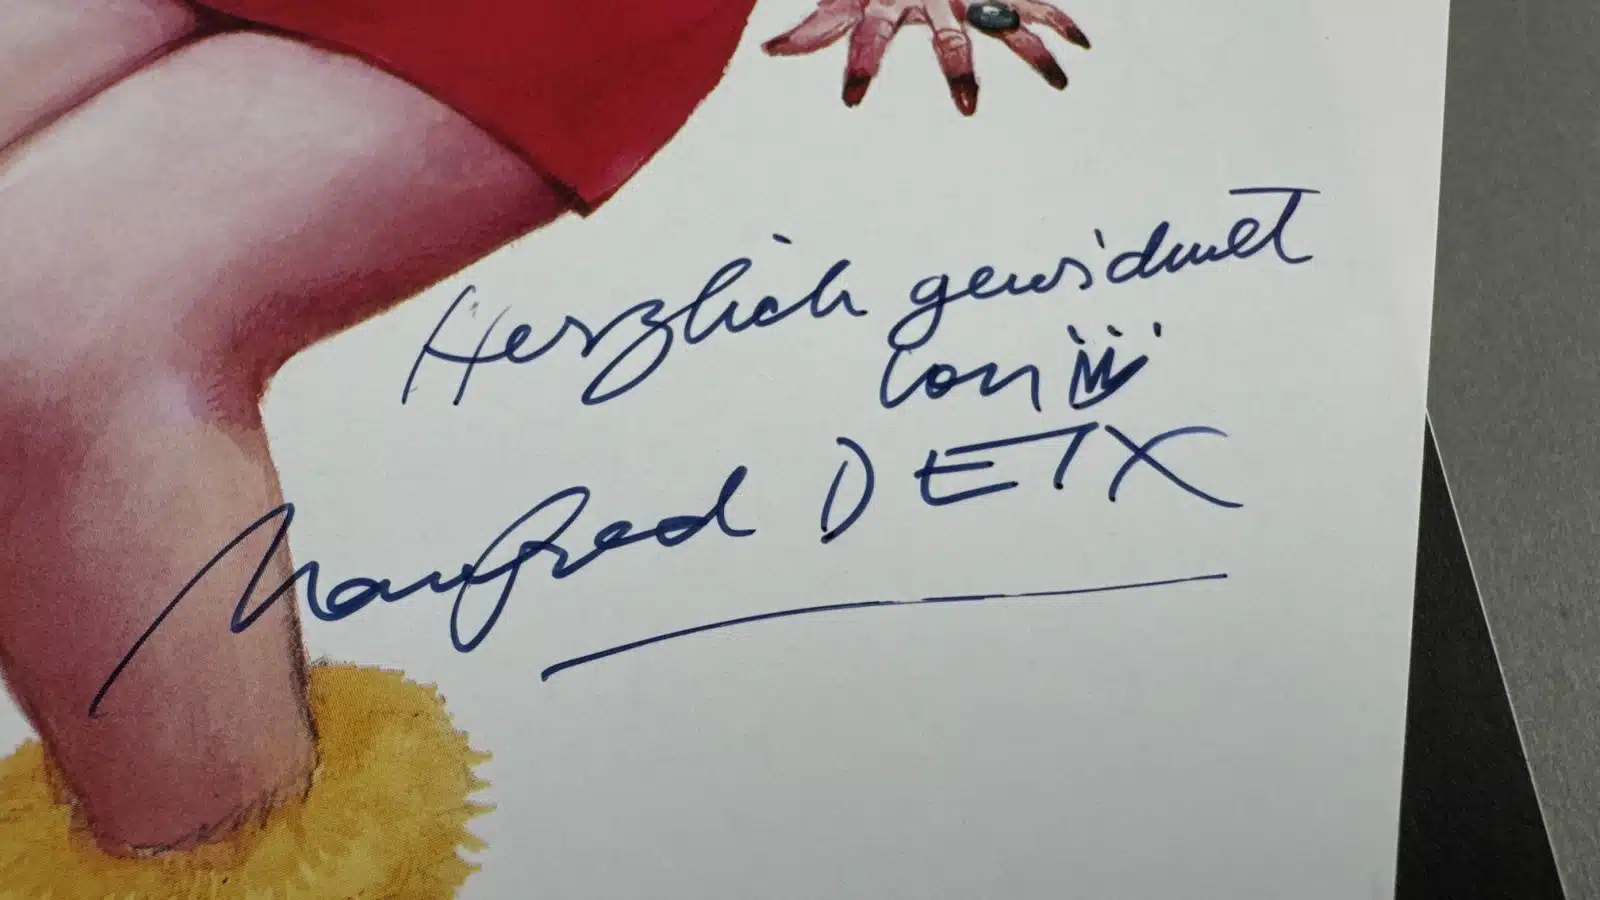 Herzlich gewidmet
von
Manfred DEIX